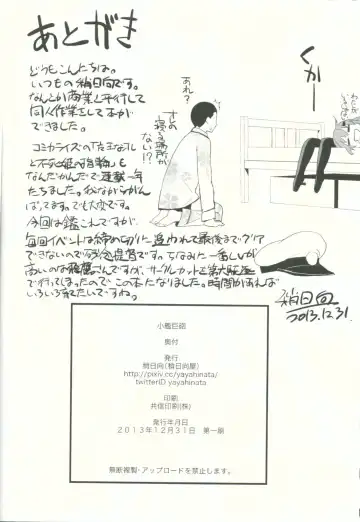 あとがき
どうもこんにちは。
いつもの稍日向です。
なんとか商業と平行して
同人作業をして本が
できました。
コミカライズの「女王なオレ
と不死姫の指輪」も
なんだかんだで連載一年
たちました。我ながらがん
ばってます。でも大変です。
今回は艦これですが、
毎回イベントは締め切りに追われて最後までクリア
できないので残念提督です。ちなみに一番しんが
高いのは飛鷹さんですが、サークルカットで第六駆逐
で行ってしまったのでこの本になりました。時間があれば
いろいろ育てたいですね。
稍日向
2013.12.31
くかー
あれ?
オレの
寝る場所が
ない!?
小艦巨砲
奥付
発行
稍日向(稍日向屋)
http://pixiv.cc/yayahinata/
twitterID yayahinata
印刷
共信印刷(株)
発行年月日
2013年12月31日 第一刷
無断複製・アップロードを禁止します。